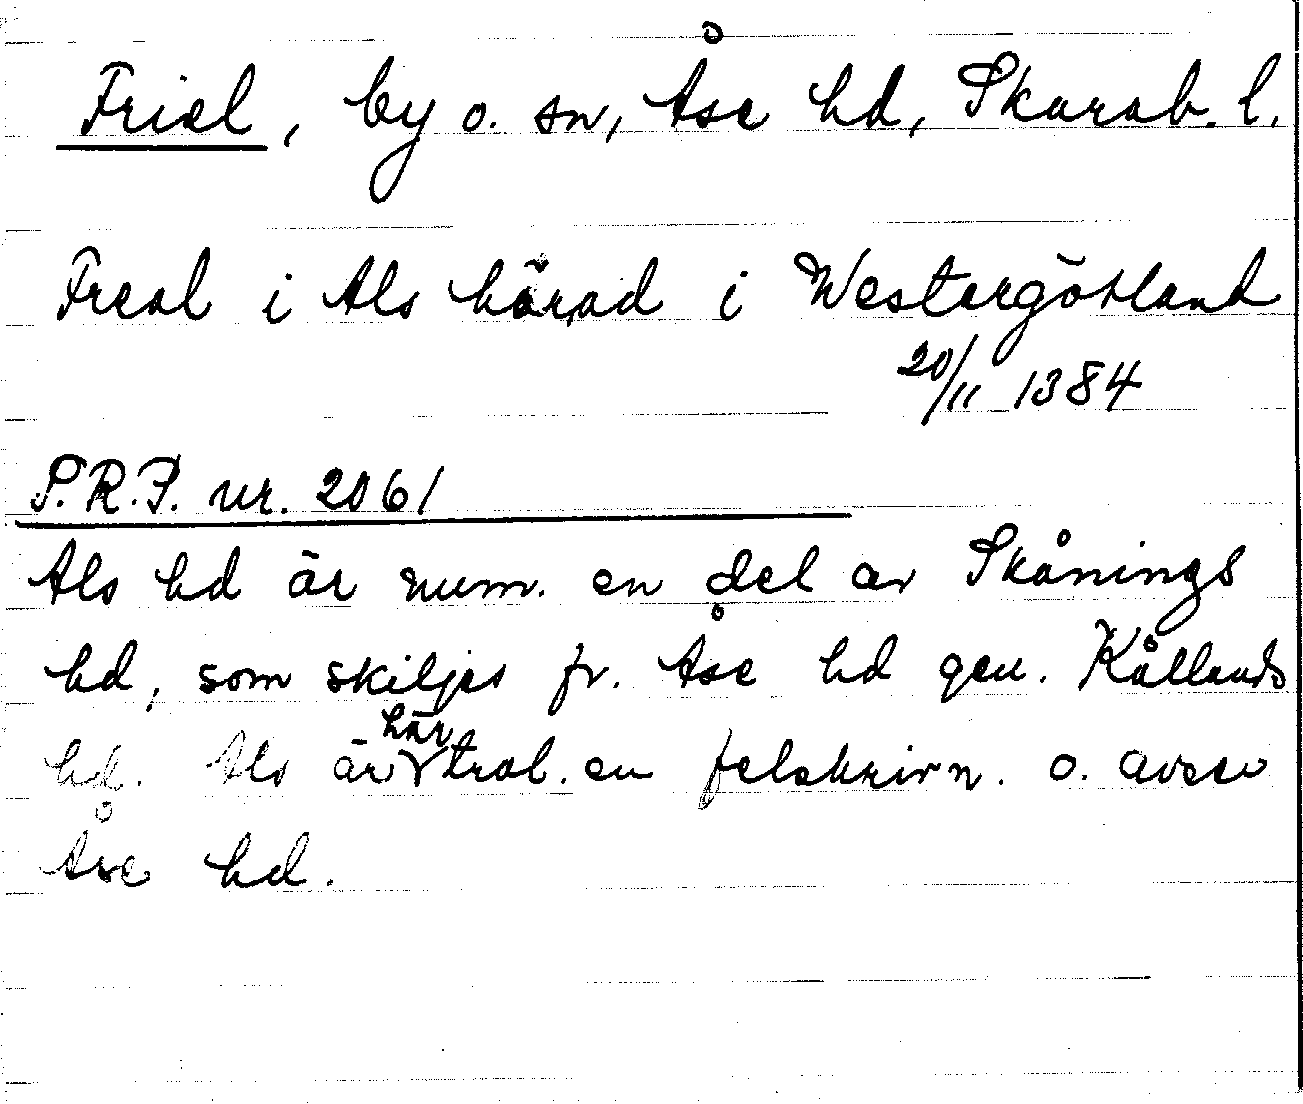 Friel, by o. sn, Åse hd, Skarab. l.
Freal i Als härad i Westergötland
20/11 1384
P.R.P. nr. 2061
Als hd är num. en del av Skånings
hd, som skiljes fr. Åse hd gen. Kållands
hd. Als är här trol. en felskrivn. o. avser
Åse hd.